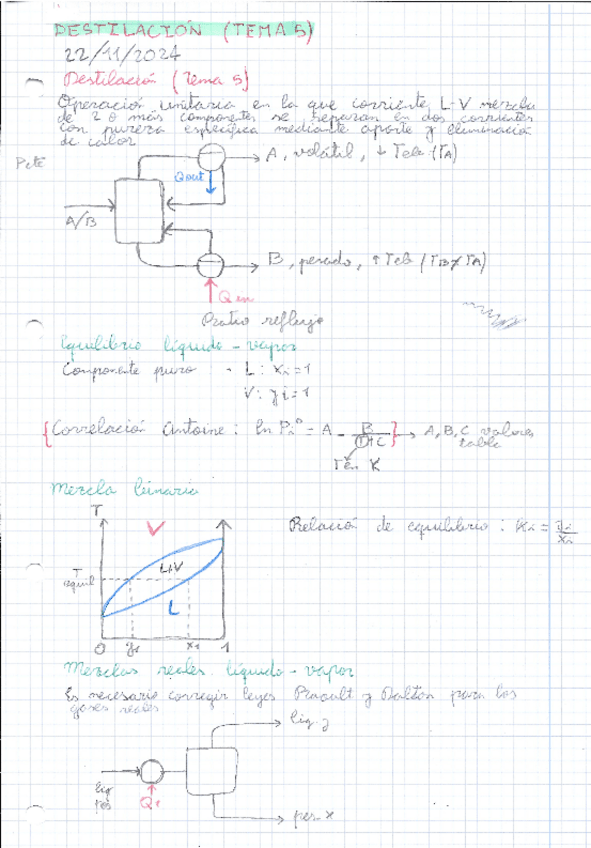 DESTILACIÓN (TEMA 5)
22/11/2024
Destilación (Tema 5)
Operación unitaria en la que corriente L-V mezcla
de 2 o más componentes se separan en dos corrientes
con pureza específica mediante aporte y eliminación
de calor
A, volátil, ↓ Teb (TA)
Qout
A/B
B, pesado, ↑ Teb (TB≠TA)
Q en
reflujo
Equilibrio líquido-vapor
Componente puro - L: xi=1
V: yi=1
{Correlación Antoine: ln Pi° = A - B/(T+C)} → A, B, C valores
tabla
K
Mezcla binaria
T
V
Relación de equilibrio: Ki = yi/xi
L+V
T
equil
L
0 y1 x1 1
Mezclas reales líquido-vapor
Es necesario corregir leyes Raoult y Dalton para los
gases reales
lig y
lig
pes
Q1
pes x